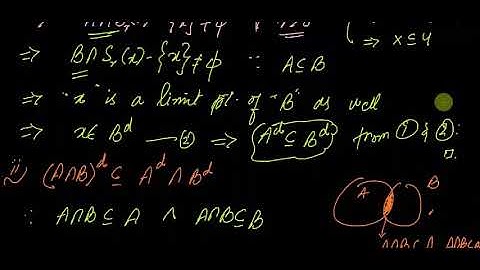 ⇒ B∩Sᵣ(x)-{x}≠ϕ ∵ A⊆B
⇒ x⊆y
⇒ "x" is a limit pt. of "B" as well
⇒ x∈Bᵈ —② ⇒ {Aᵈ⊆Bᵈ} from ① & ②:
ii) (A∩B)ᵈ ⊆ Aᵈ∩Bᵈ
∵ A∩B⊆A ∧ A∩B⊆B
A B